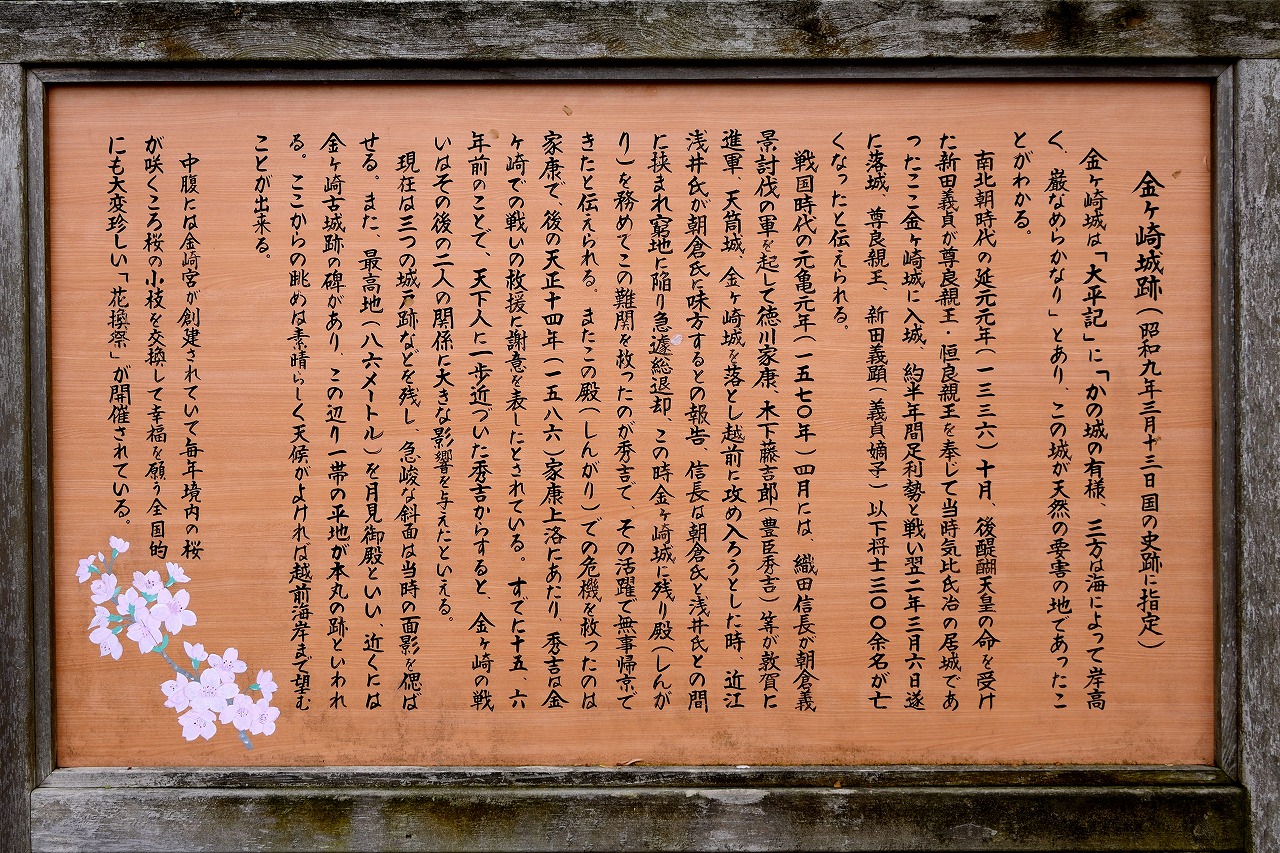 金ヶ崎城跡(昭和九年三月十三日国の史跡に指定)
金ヶ崎城は「大平記」に「かの城の有様、三方は海によって岸高
く、巌なめらかなり」とあり、この城が天然の要害の地であったこ
とがわかる。
南北朝時代の延元元年(一三三六)十月、後醍醐天皇の命を受け
た新田義貞が尊良親王・恒良親王を奉じて当時気比氏治の居城であ
ったここ金ヶ崎城に入城、約半年間足利勢と戦い翌二年三月六日遂
に落城、尊良親王、新田義顕(義貞嫡子)以下将士三〇〇余名が亡
くなったと伝えられる。
戦国時代の元亀元年(一五七〇年)四月には、織田信長が朝倉義
景討伐の軍を起して徳川家康、木下藤吉郎(豊臣秀吉)等が敦賀に
進軍、天筒城、金ヶ崎城を落とし越前に攻め入ろうとした時、近江
浅井氏が朝倉氏に味方するとの報告、信長は朝倉氏と浅井氏との間
に挟まれ窮地に陥り急遽総退却、この時金ヶ崎城に残り殿(しんが
り)を務めてこの難関を救ったのが秀吉で、その活躍で無事帰京で
きたと伝えられる。またこの殿(しんがり)での危機を救ったのは
家康で、後の天正十四年(一五八六)家康上洛にあたり、秀吉は金
ヶ崎での戦いの救援に謝意を表したとされている。すでに十五、六
年前のことで、天下人に一歩近づいた秀吉からすると、金ヶ崎の戦
いはその後の二人の関係に大きな影響を与えたといえる。
現在は三つの城戸跡などを残し、急峻な斜面は当時の面影を偲ば
せる。また、最高地(八六メートル)を月見御殿といい、近くには
金ヶ崎古城跡の碑があり、この辺り一帯の平地が本丸の跡といわれ
る。ここからの眺めは素晴らしく天候がよければ越前海岸まで望む
ことが出来る。
中腹には金崎宮が創建されていて毎年境内の桜
が咲くころ桜の小枝を交換して幸福を願う全国的
にも大変珍しい「花換祭」が開催されている。